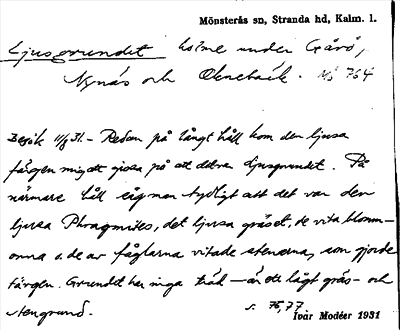 Mönsterås sn, Stranda hd, Kalm. l.
Ljusgrundet holme under Gårö,
Nynäs och Oknebäck. Nr 764
Besök 11/8 31. – Redan på långt håll kom den ljusa
färgen mig att gissa på att detta Ljusgrundet. På
närmare håll såg man tydligt att det var den
ljusa Phragmites, det ljusa gräset, de vita blomm-
orna o. de av fåglarna vitade stenarna, som gjorde
färgen. Grundet har inga träd – är ett lågt gräs- och
stengrund.
s. 76, 77
Ivar Modéer 1931